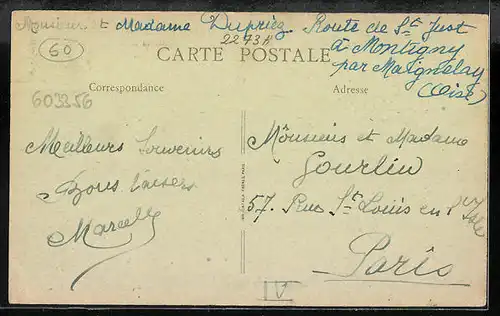 Monsieur et Madame Dupriez Route de St Just
à Montigny
par Maignelay
(Oise)
60
2273A
CARTE POSTALE
Correspondance
Adresse
603256
Meilleurs Souvenirs
Bons baisers
Marcelle
Monsieur et Madame
Gourlin
57. Rue St Louis en l'Isle
Paris
IV